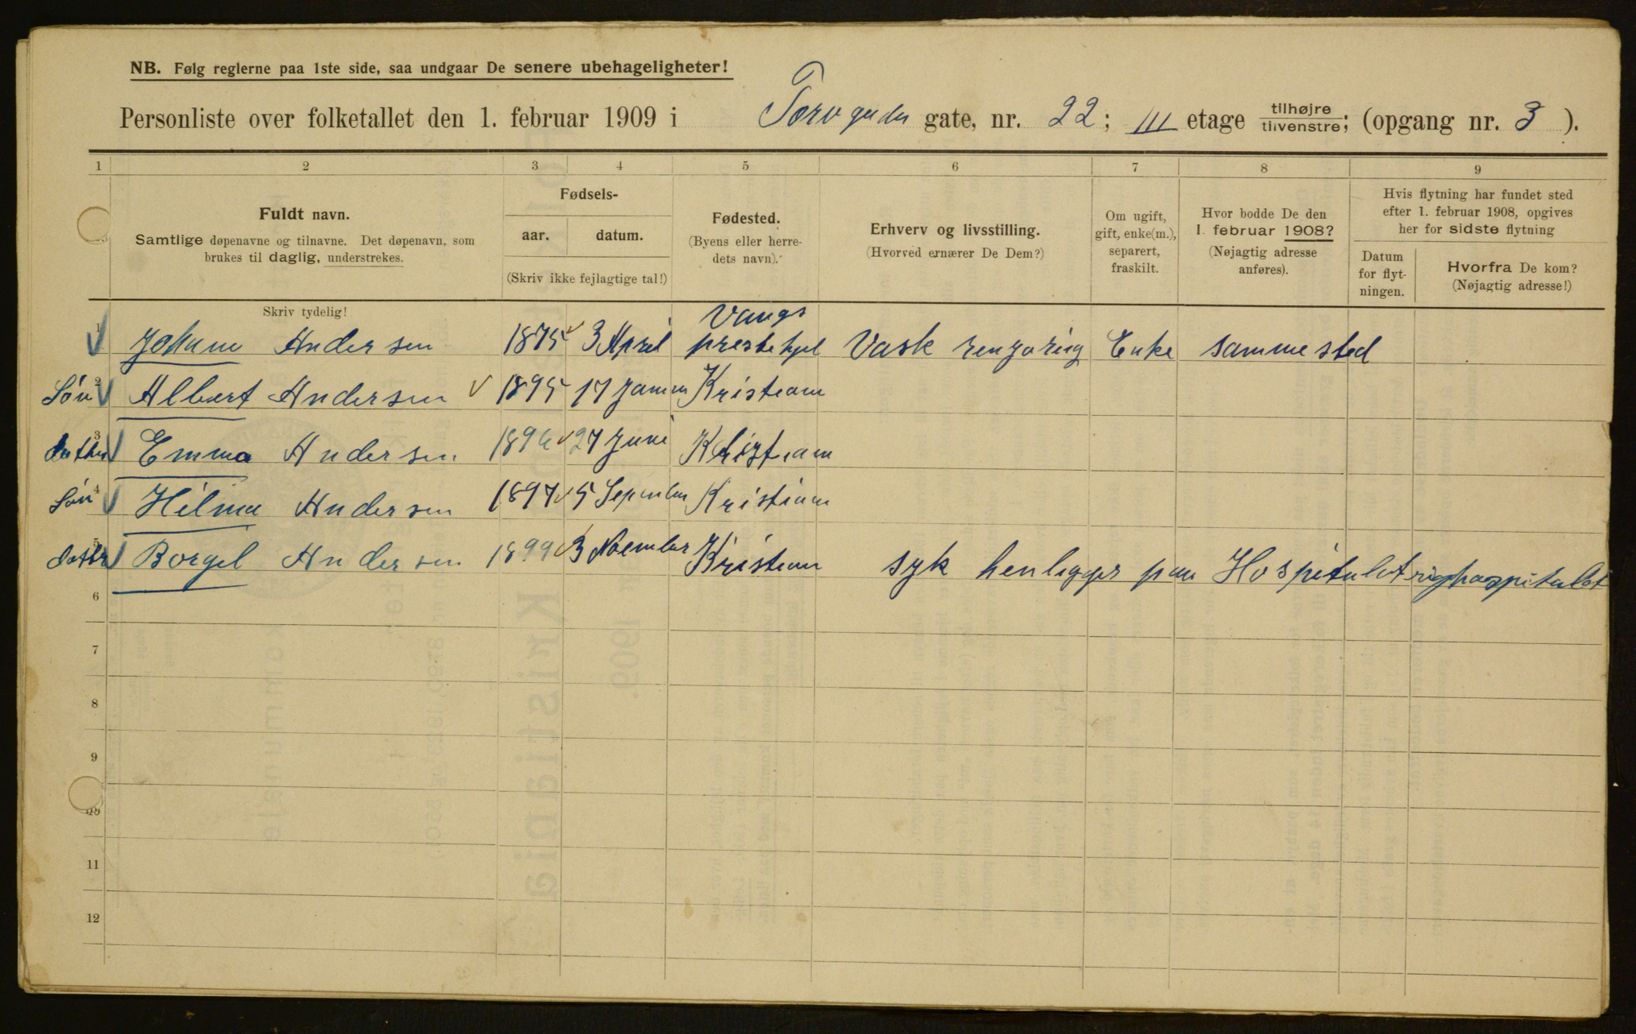 NB. Følg reglerne paa 1ste side, saa undgaar De senere ubehageligheter!
Personliste over folketallet den 1. februar 1909 i Torvgaden gate, nr. 22; III etage tilhøjre tilvenstre; (opgang nr. 3 ).
1 2 3 4 5 6 7 8 9
Fuldt navn.
Samtlige døpenavne og tilnavne. Det døpenavn, som
brukes til daglig, understrekes.
Fødsels-
aar. datum.
(Skriv ikke fejlagtige tal!)
Fødested.
(Byens eller herre-
dets navn).
Erhverv og livsstilling.
(Hvorved ernærer De Dem?)
Om ugift,
gift, enke(m.),
separert,
fraskilt.
Hvor bodde De den
1. februar 1908?
(Nøjagtig adresse
anføres).
Hvis flytning har fundet sted
efter 1. februar 1908, opgives
her for sidste flytning
Datum
for flyt-
ningen.
Hvorfra De kom?
(Nøjagtig adresse!)
Skriv tydelig!
1 Johane Andersen 1875 3 April Vangs prestekjel Vask rengøring Enke samme sted
Søn 2 Albert Andersen 1895 17 Kristiam
3 Emma Andersen 1896 27 Juni Kristiam
Søn 4 Hilmar Andersen 1897 5 Kristiam
5 Borgel Andersen 1899 3 Noember Kristiam syk henligger paa Hospitalet righospitalet
6
7
8
9
10
11
12